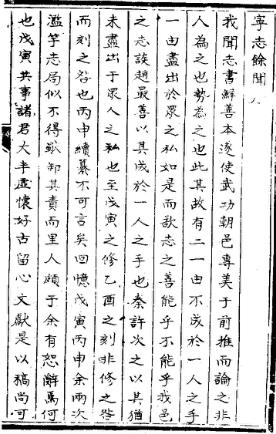 寧志餘聞
我聞志書鮮善本遂使武功朝邑專美于前推而論之非
人為之也勢為之也此其故有二一由不成於一人之手
一由盡出於眾之私如是而欲志之善能乎不能乎我邑
之志談趙最善以其成於一人之手也秦許次之以其猶
未盡出于眾人之私也至戊寅之修乙酉之刻非修之咎
而刻之咎也丙申續纂不可言矣回憶戊寅丙申余兩次
濫竽志局似不得辭卸其責而里人頗于余有恕辭焉何
也戊寅共事諸君大半虛懷好古留心文獻是以稿尚可